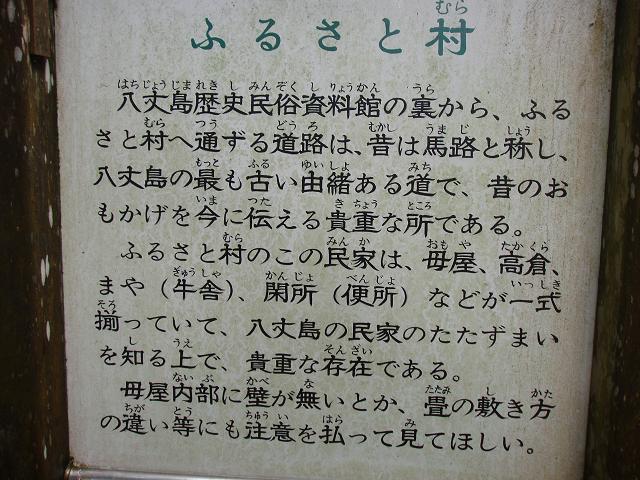 ふるさと村
八丈島歴史民俗資料館の裏から、ふる
さと村へ通ずる道路は、昔は馬路と称し、
八丈島の最も古い由緒ある道で、昔のお
もかげを今に伝える貴重な所である。
ふるさと村のこの民家は、母屋、高倉、
まや（牛舎）、閑所（便所）などが一式
揃っていて、八丈島の民家のたたずまい
を知る上で、貴重な存在である。
母屋内部に壁が無いとか、畳の敷き方
の違い等にも注意を払って見てほしい。